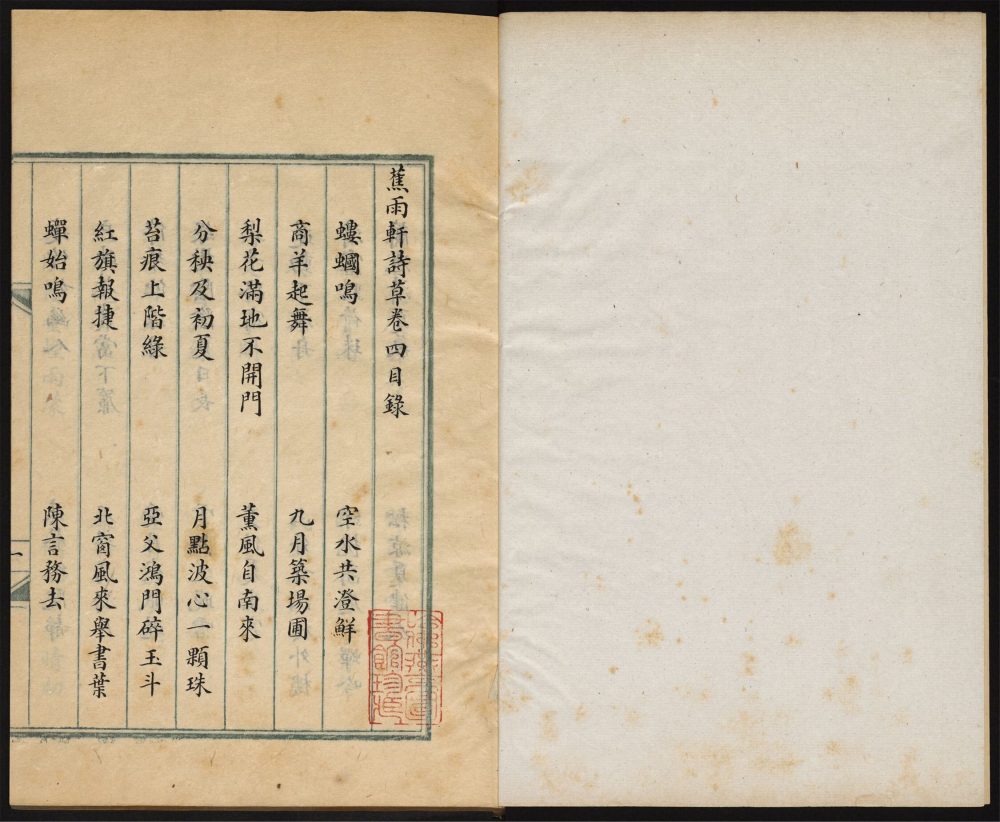 蕉雨軒詩草卷四目錄
螻蟈鳴 空水共澄鮮
商羊起舞 九月築場圃
梨花滿地不開門 薰風自南來
分秧及初夏 月點波心一顆珠
苔痕上階綠 亞父鴻門碎玉斗
紅旗報捷 北窗風來舉書葉
蟬始鳴 陳言務去
一